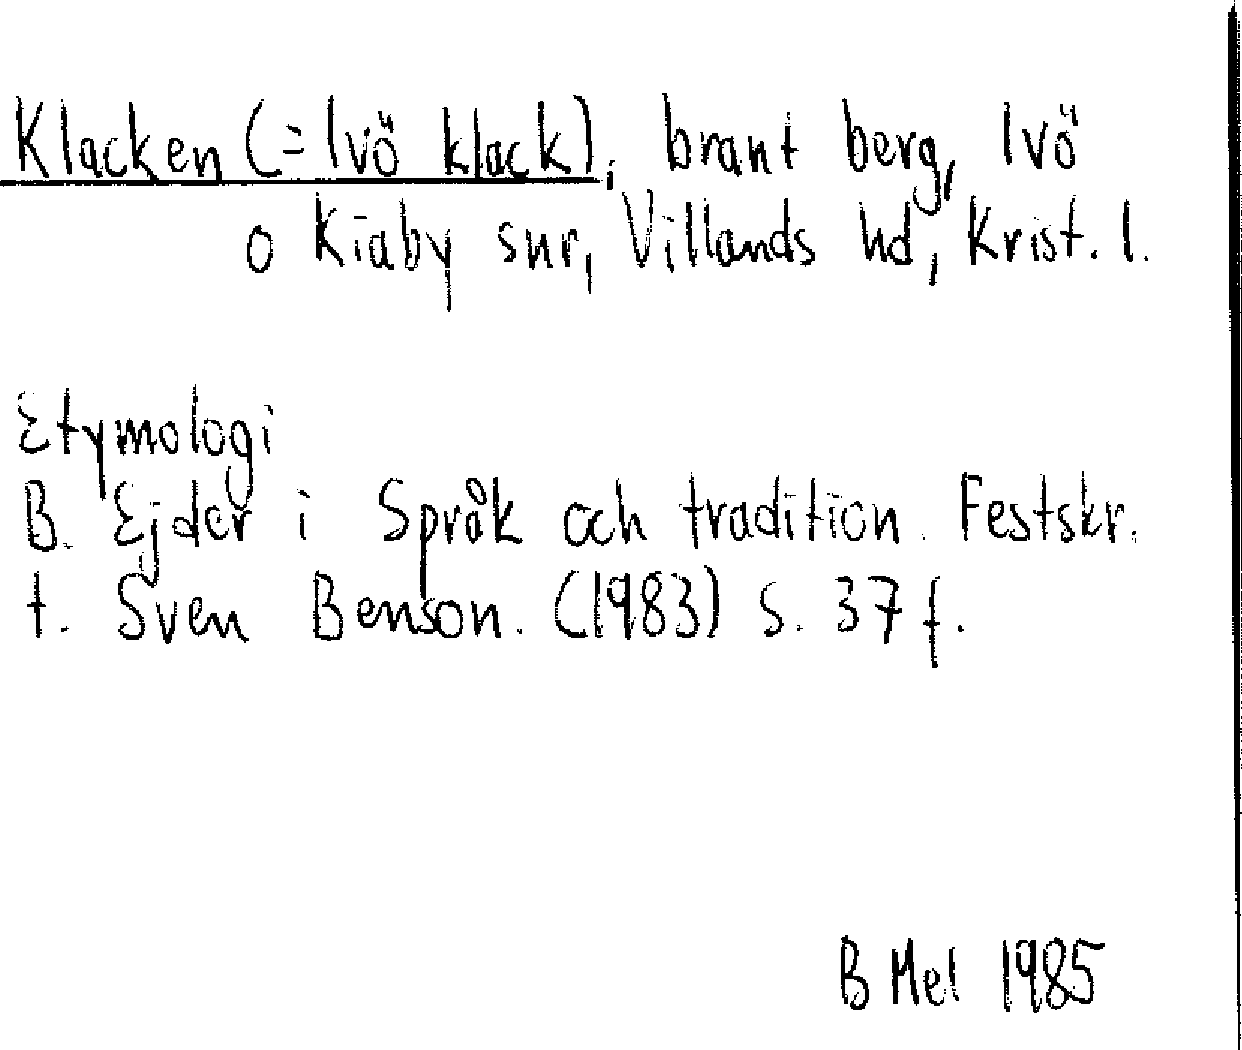 Klacken (= Ivö klack), brant berg, Ivö
o Kiaby snr, Villands hd, Krist. l.
Etymologi
B. Ejder i Språk och tradition. Festskr.
t. Sven Benson. (1983) S. 37 f.
B Mel 1985